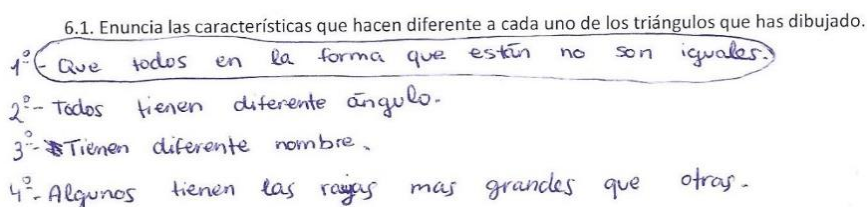 6.1. Enuncia las características que hacen diferente a cada uno de los triángulos que has dibujado.
1º- Que todos en la forma que están no son iguales.
2º- Todos tienen diferente ángulo.
3º- Tienen diferente nombre.
4º- Algunos tienen las rayas mas grandes que otras.